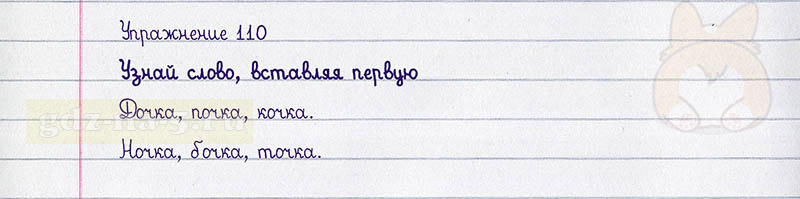 Упражнение 110
Узнай слово, вставляя первую
Дочка, почка, кочка.
gdz-na-5.ru
Ночка, бочка, точка.